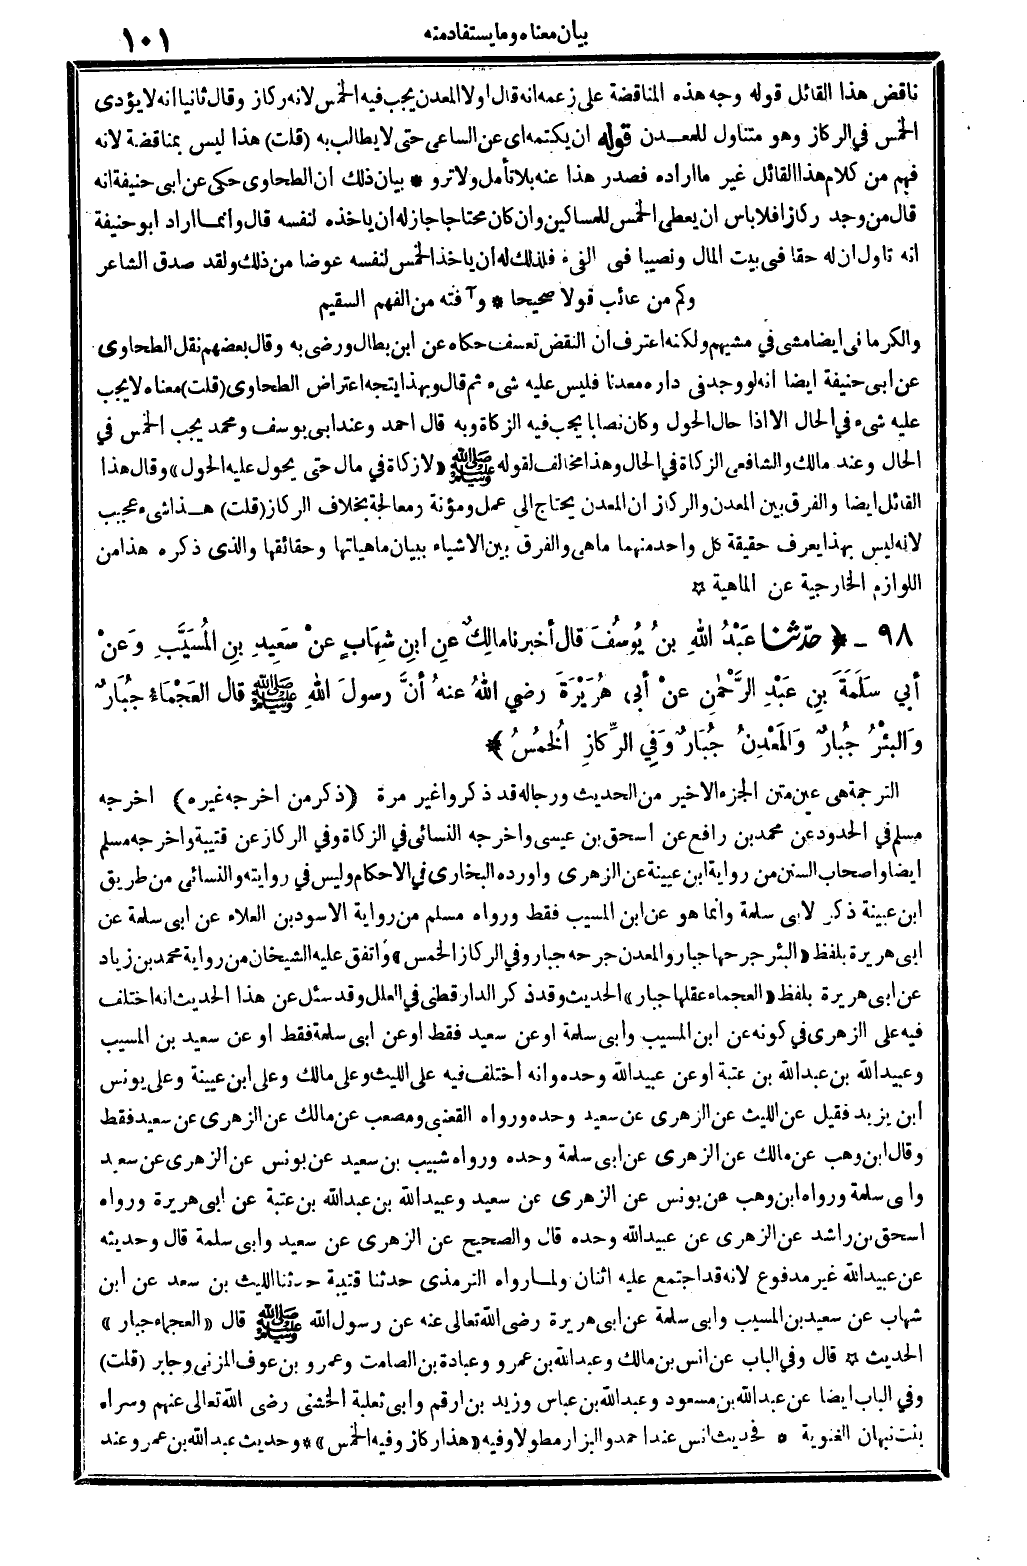 بيان معناه وما يستفاد منه
١٠١
ناقض هذا القائل قوله وجه هذه المناقضة على زعمه انه قال اولا المعدن يجب فيه الخمس لانه ركاز وقال ثانيا انه لا يؤدى
الخمس في الركاز وهو متناول للمعدن قوله ان يكتمه اى عن الساعى حتى لا يطالب به (قلت) هذا ليس بمناقضة لانه
فهم من كلام هذا القائل غير ما اراده فصدر هذا عنه بلا تأمل ولا ترو * بيان ذلك ان الطحاوى حكى عن ابى حنيفة انه
قال من وجد ركازا فلا باس ان يعطى الخمس للمساكين وان كان محتاجا جاز له ان ياخذه لنفسه قال وانما اراد ابو حنيفة
انه تاول ان له حقا فى بيت المال ونصيبا فى الفىء فلذلك له أن ياخذ الخمس لنفسه عوضا من ذلك ولقد صدق الشاعر
وكم من عائب قولا صحيحا * وآفته من الفهم السقيم
والكرمانى ايضا مشى في مشيهم ولكنه اعترف ان النقض تعسف حكاه عن ابن بطال ورضى به وقال بعضهم نقل الطحاوى
عن ابى حنيفة ايضا انه لو وجد فى داره معدنا فليس عليه شىء ثم قال وبهذا يتجه اعتراض الطحاوى (قلت) معناه لا يجب
عليه شىء في الحال الا اذا حال الحول وكان نصابا يجب فيه الزكاة وبه قال احمد وعند ابى يوسف ومحمد يجب الخمس في
الحال وعند مالك والشافعى الزكاة في الحال وهذا مخالف لقوله ﷺ «لا زكاة في مال حتى يحول عليه الحول» وقال هذا
القائل ايضا والفرق بين المعدن والركاز ان المعدن يحتاج الى عمل ومؤنة ومعالجة بخلاف الركاز (قلت) هذا شىء عجيب
لانه ليس بهذا يعرف حقيقة كل واحد منهما ماهى والفرق بين الاشياء ببيان ماهياتها وحقائقها والذى ذكره هذا من
اللوازم الخارجية عن الماهية ☆
٩٨ - ﴿ حدثنا عَبْدُ اللهِ بنُ يُوسُفَ قال أخبرنا مالِكٌ عنِ ابنِ شِهَابٍ عنْ سَعِيدِ بنِ المُسَيَّبِ وَعنْ
أبي سَلَمَةَ بنِ عبْدِ الرَّحْمٰنِ عنْ أبى هُرَيْرَةَ رضي اللهُ عنهُ أنَّ رسولَ اللهِ ﷺ قال العَجْمَاءُ جُبَارٌ
وَالبئْرُ جُبارٌ وَالمَعْدِنُ جُبَارٌ وَفِي الرِّكازِ الخُمُسُ ﴾
الترجمة هى عين متن الجزء الاخير من الحديث ورجاله قد ذكروا غير مرة (ذكر من اخرجه غيره) اخرجه
مسلم في الحدود عن محمد بن رافع عن اسحق بن عيسى واخرجه النسائى في الزكاة وفي الركاز عن قتيبة واخرجه مسلم
ايضا واصحاب السنن من رواية ابن عيينة عن الزهرى واورده البخارى في الاحكام وليس في روايته والنسائى من طريق
ابن عيينة ذكر لابى سلمة وانما هو عن ابن المسيب فقط ورواه مسلم من رواية الاسود بن العلاء عن ابى سلمة عن
ابى هريرة بلفظ «البئر جرحها جبار والمعدن جرحه جبار وفي الركاز الخمس» واتفق عليه الشيخان من رواية محمد بن زياد
عن ابى هريرة بلفظ «العجماء عقلها جبار» الحديث وقد ذكر الدارقطنى في العلل وقد سئل عن هذا الحديث انه اختلف
فيه على الزهرى في كونه عن ابن المسيب وأبى سلمة او عن سعيد فقط او عن ابى سلمة فقط او عن سعيد بن المسيب
وعبيد الله بن عبد الله بن عتبة او عن عبيد الله وحده وانه أختلف فيه على الليث وعلى مالك وعلى ابن عيينة وعلى يونس
أبن يزيد فقيل عن الليث عن الزهرى عن سعيد وحده ورواه القعنبى ومصعب عن مالك عن الزهرى عن سعيد فقط
وقال ابن وهب عن مالك عن الزهرى عن ابى سلمة وحده ورواه شبيب بن سعيد عن يونس عن الزهرى عن سعيد
وابى سلمة ورواه ابن وهب عن يونس عن الزهرى عن سعيد وعبيد الله بن عبد الله بن عتبة عن ابى هريرة ورواه
اسحق بن راشد عن الزهرى عن عبيد الله وحده قال والصحيح عن الزهرى عن سعيد وابى سلمة قال وحديثه
عن عبيد الله غير مدفوع لانه قد اجتمع عليه اثنان ولما رواه الترمذى حدثنا قتيبة حدثنا الليث بن سعد عن ابن
شهاب عن سعيد بن المسيب وابى سلمة عن ابى هريرة رضى الله تعالى عنه عن رسول الله ﷺ قال «العجماء جبار»
الحديث ☆ قال وفي الباب عن انس بن مالك وعبد الله بن عمرو وعبادة بن الصامت وعمرو بن عوف المزنى وجابر (قلت)
وفي الباب ايضا عن عبد الله بن مسعود وعبد الله بن عباس وزيد بن ارقم وأبى ثعلبة الخشنى رضى الله تعالى عنهم وسراء
بنت نبهان الغنوية * فحديث انس عند احمد والبزار مطولا وفيه «هذا ركاز وفيه الخمس» * وحديث عبد الله بن عمرو عند